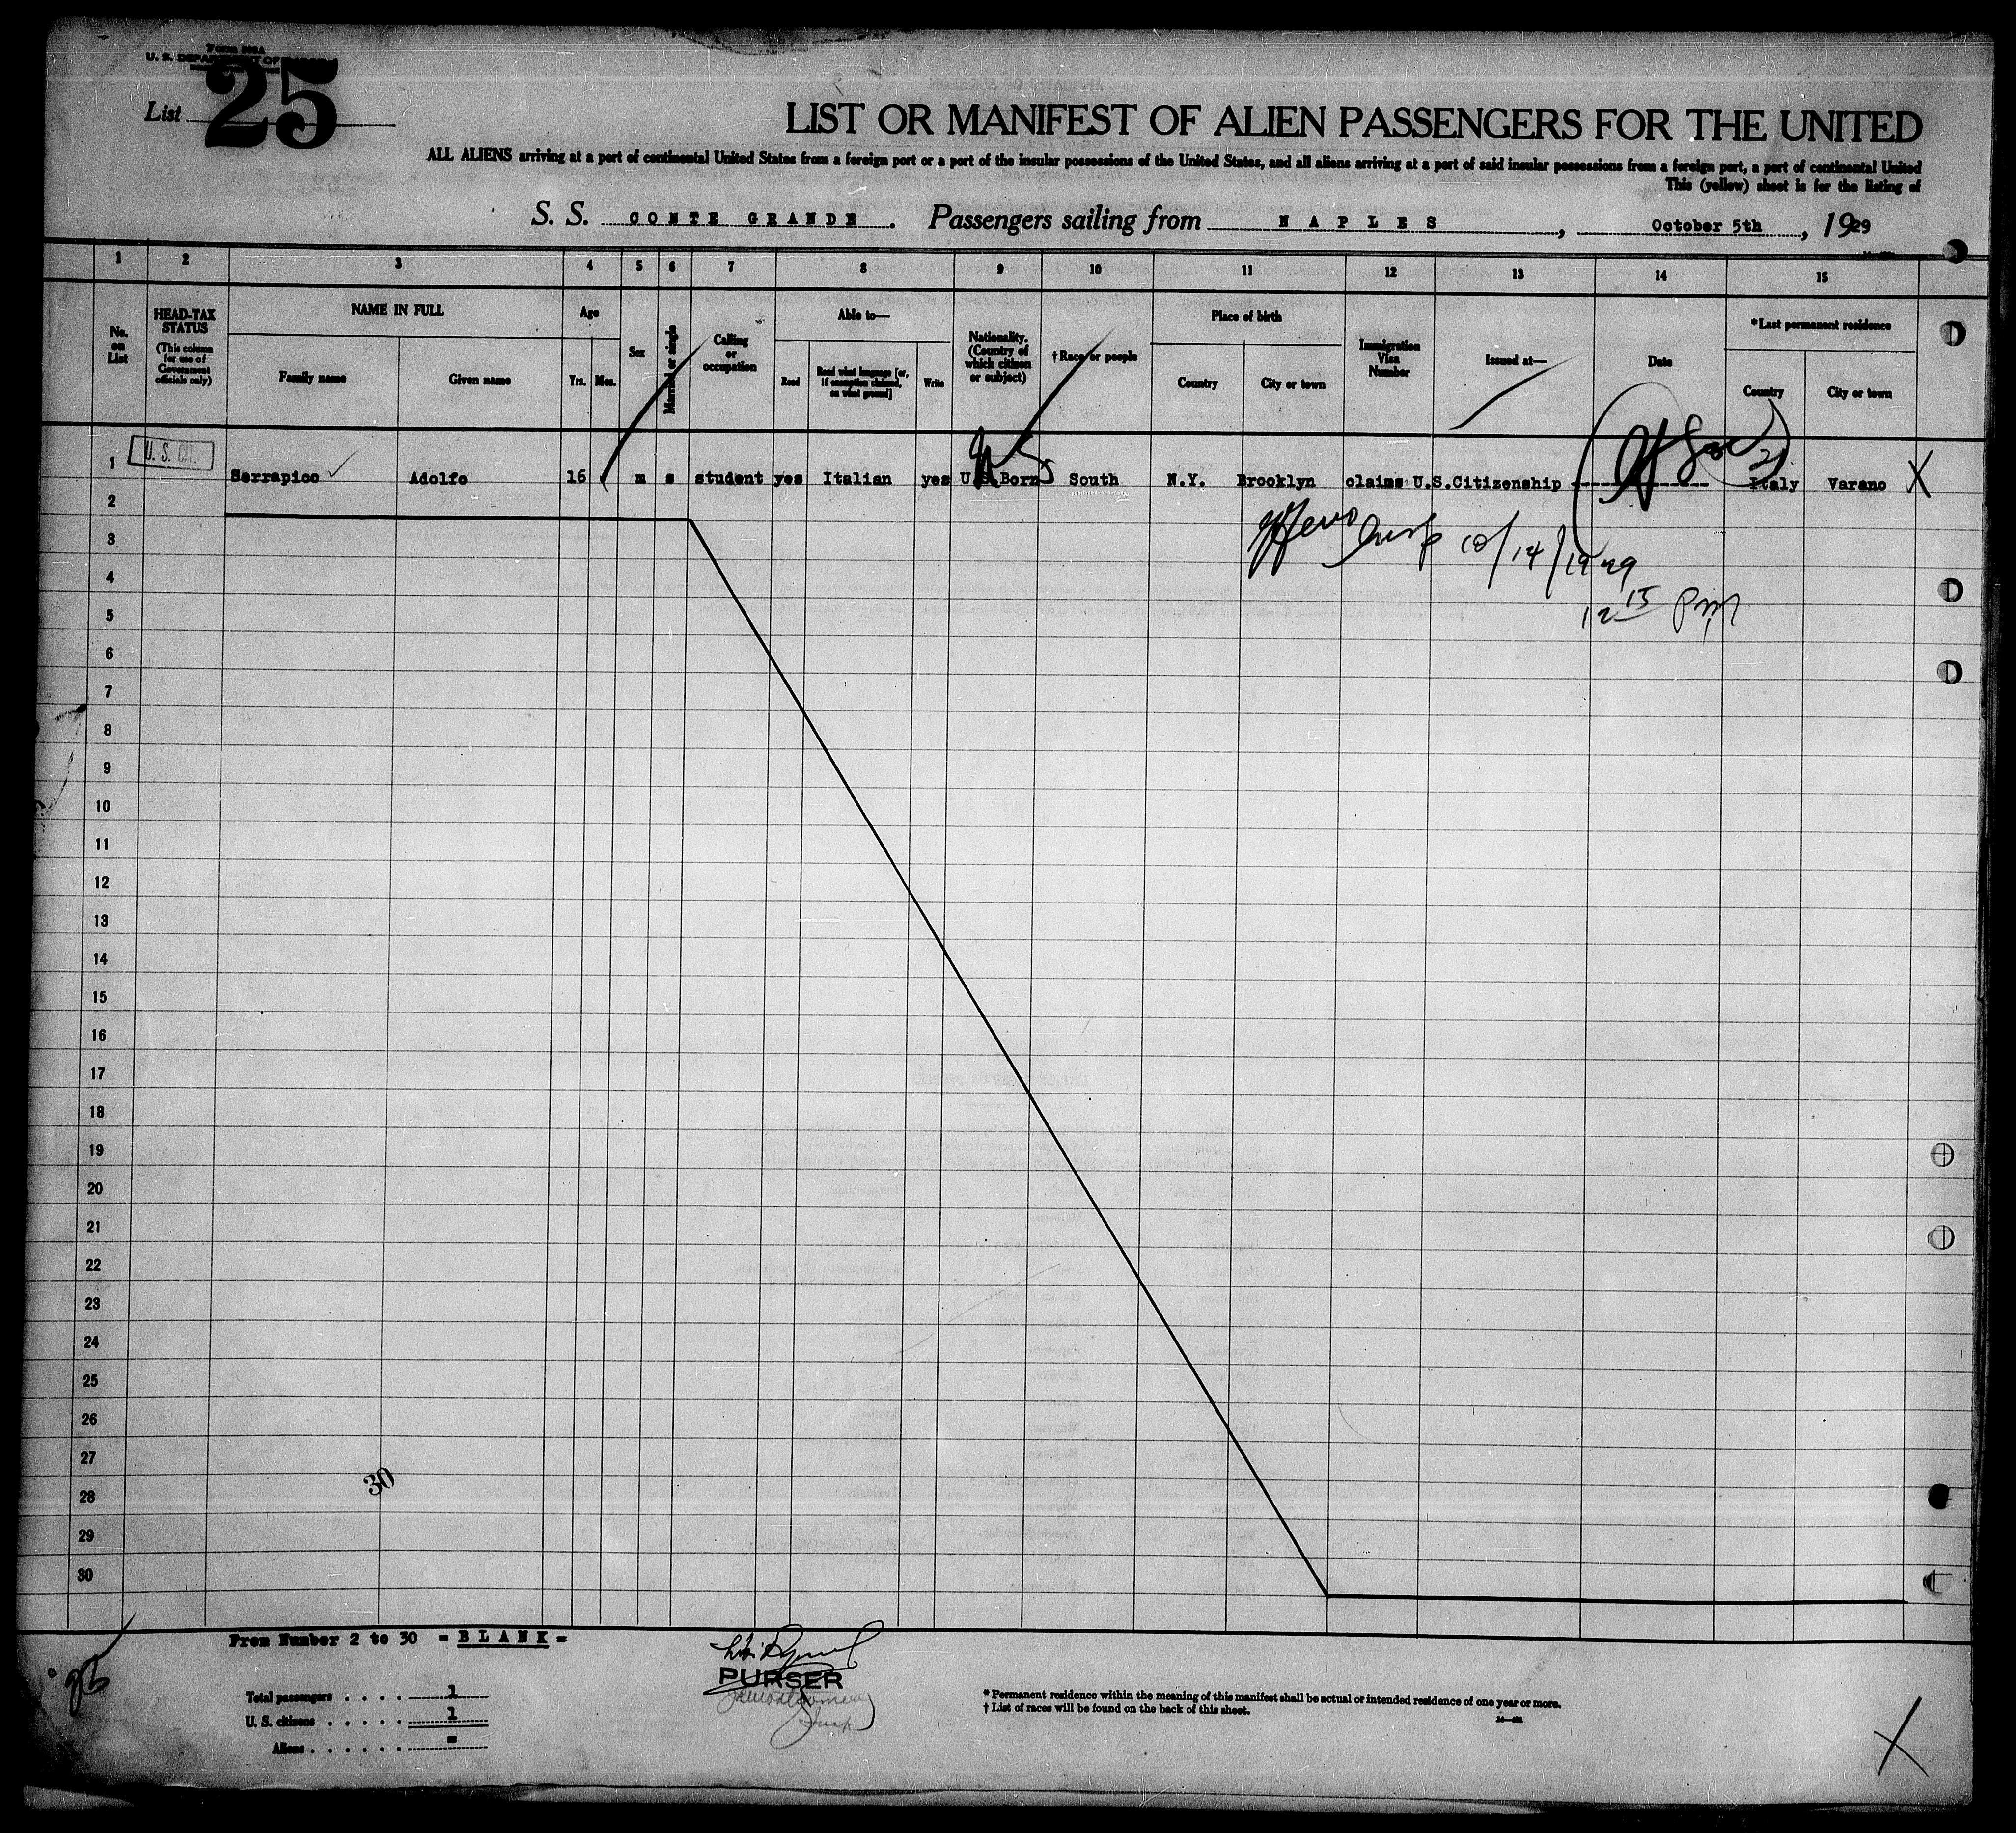 Form 500A
U. S. DEPARTMENT OF
List 25
LIST OR MANIFEST OF ALIEN PASSENGERS FOR THE UNITED
ALL ALIENS arriving at a port of continental United States from a foreign port or a port of the insular possessions of the United States, and all aliens arriving at a port of said insular possessions from a foreign port, a port of continental United
This (yellow) sheet is for the listing of
S. S. CONTE GRANDE. Passengers sailing from NAPLES, October 5th, 1929
1 2 3 4 5 6 7 8 9 10 11 12 13 14 15
No. on List
HEAD-TAX STATUS
(This column for use of Government officials only)
NAME IN FULL
Family name
Given name
Age
Yrs. Mos.
Sex
Married or single
Calling or occupation
Able to—
Read
Read what language [or, if exemption claimed, on what ground]
Write
Nationality. (Country of which citizen or subject)
†Race or people
Place of birth
Country
City or town
Immigration Visa Number
Issued at—
Date
*Last permanent residence
Country
City or town
U. S. CIT.
1 Serrapico ✓ Adolfo 16 m s student yes Italian yes U.S.Born South N.Y. Brooklyn claims U.S.Citizenship Italy Varano X
2
3
10/14/1929
4
12 15 PM
5
6
7
8
9
10
11
12
13
14
15
16
17
18
19
20
21
22
23
24
25
26
27
30
28
29
30
From Number 2 to 30 = BLANK =
PURSER
Total passengers . . . . 1
U. S. citizens . . . . . 1
Aliens . . . . . . =
* Permanent residence within the meaning of this manifest shall be actual or intended residence of one year or more.
† List of races will be found on the back of this sheet.
X